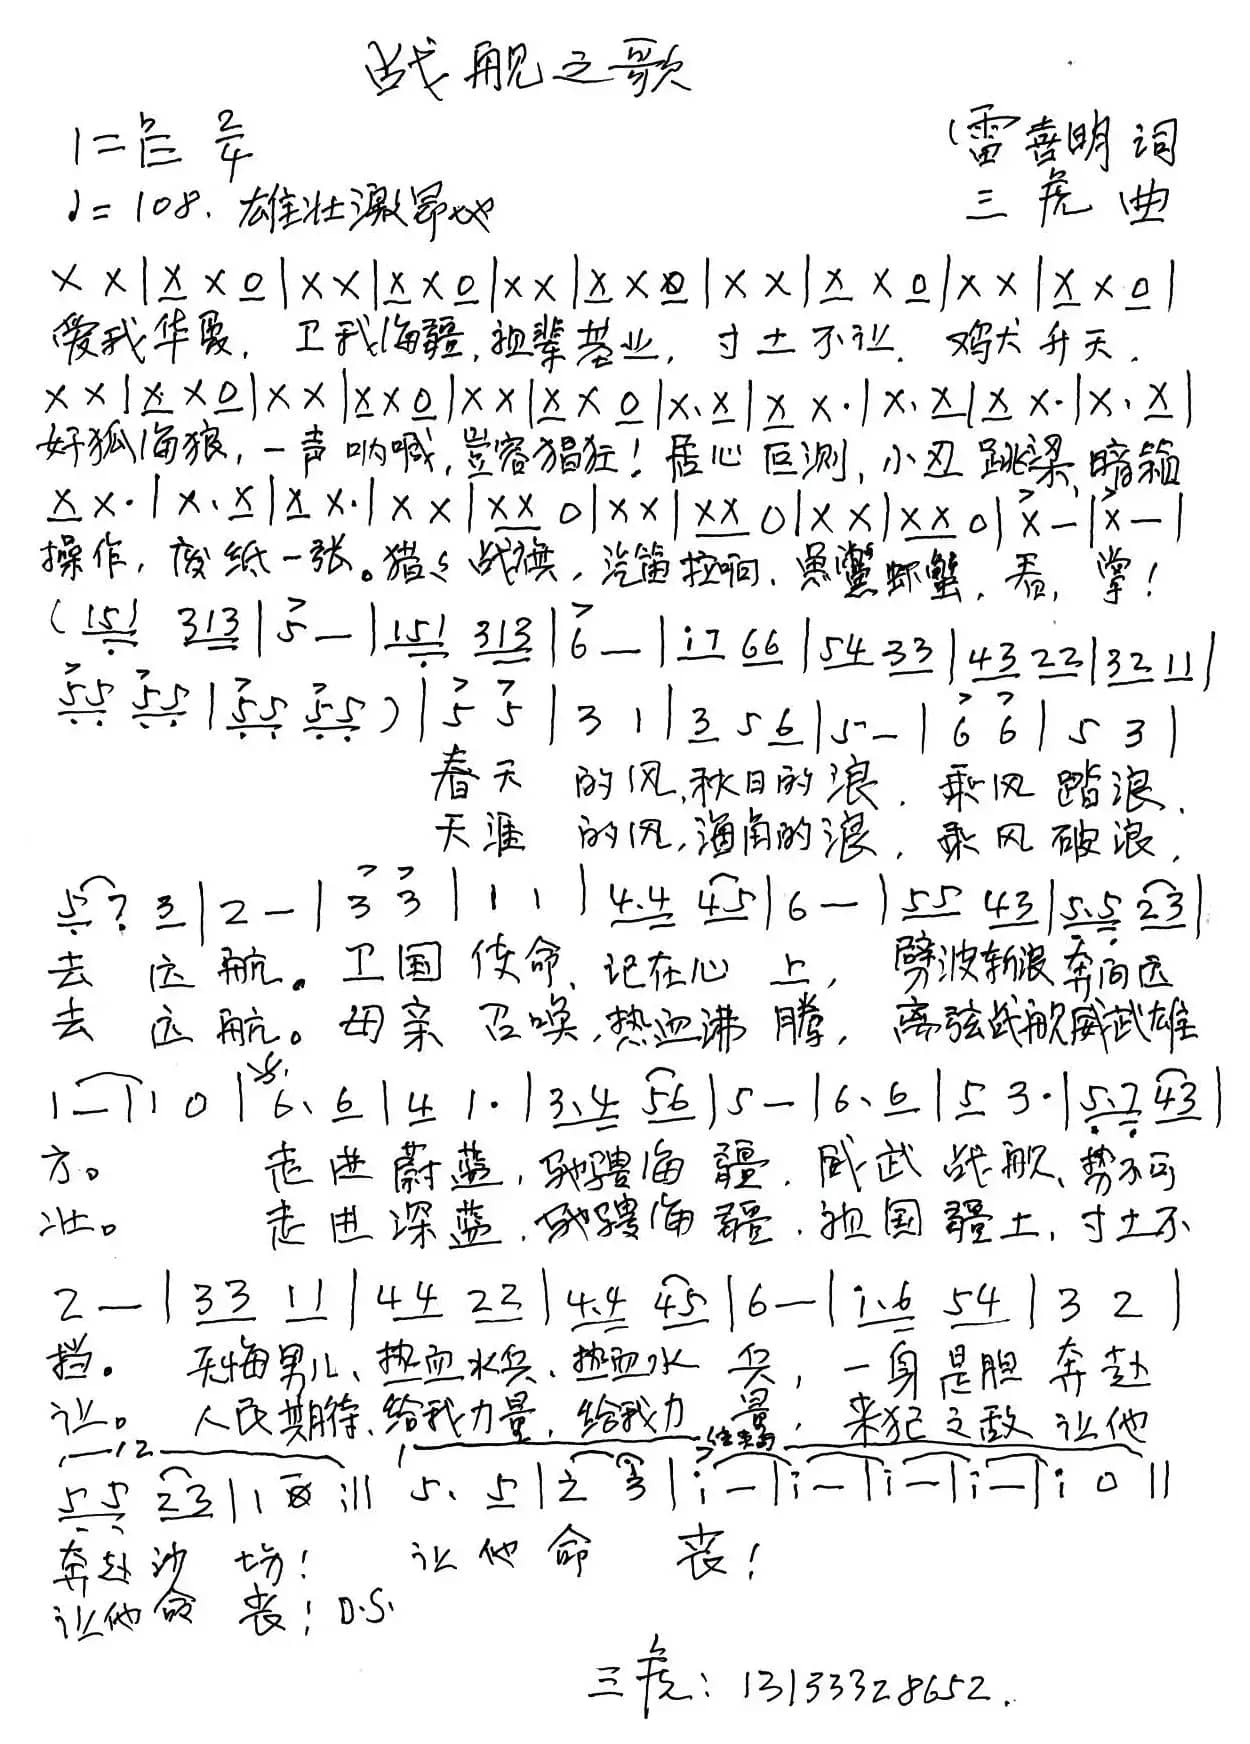 战舰之歌
1=♭E 2/4
(雷喜明 词
♩=108. 雄壮激昂地
三虎 曲
X X|X X 0|X X|X X 0|X X|X X 0|X X|X X 0|X X|X X 0|
爱我华夏, 卫我海疆,祖辈基业, 寸土不让. 鸡犬升天.
X X|X X 0|X X|X X 0|X X|X X 0|X. X|X X.|X. X|X X.|X. X|
好狐海狼,一声呐喊,岂容猖狂!居心叵测,小丑跳梁,暗箱
X X.|X. X|X X.|X X|X X 0|X X|X X 0|X X|X X 0|X -|X -|
操作,废纸一张。猎々战旗,汽笛拉响,鱼鳖虾蟹,看,掌!
(151 313|5 -|151 313|6 -|i7 66|54 33|43 22|32 11|
55 55|55 55)|5 5|3 1|3 5 6|5 -|6 6|5 3|
春天 的风,秋日的浪. 乘风踏浪,
天涯 的风,海角的浪, 乘风破浪,
5 7 3|2 -|3 3|1 1|4.4 45|6 -|55 43|5.5 23|
去 远 航。卫国使命,记在心 上, 劈波斩浪奔向远
去 远 航。母亲召唤,热血沸 腾, 离弦战舰威武雄
1 -|1 0|6. 6|4 1.|3.4 56|5 -|6. 6|5 3.|5.7 43|
方。 走进蔚蓝,驰骋海疆.威武战舰、势不可
壮。 走进深蓝,驰骋海疆.祖国疆土,寸土不
2 -|33 11|44 22|4.4 45|6 -|i.6 54|3 2|
挡。 无悔男儿、热血水兵、热血水兵,一身是胆奔赴
让。 人民期待、给我力量,给我力量,来犯之敌让他
1 2
结束句
55 23|1 0:‖ 5. 5|2 3|i -|i -|i -|i -|i 0‖
奔赴沙场! 让他命丧!
让他命丧! D.S.
三虎:13133328652.